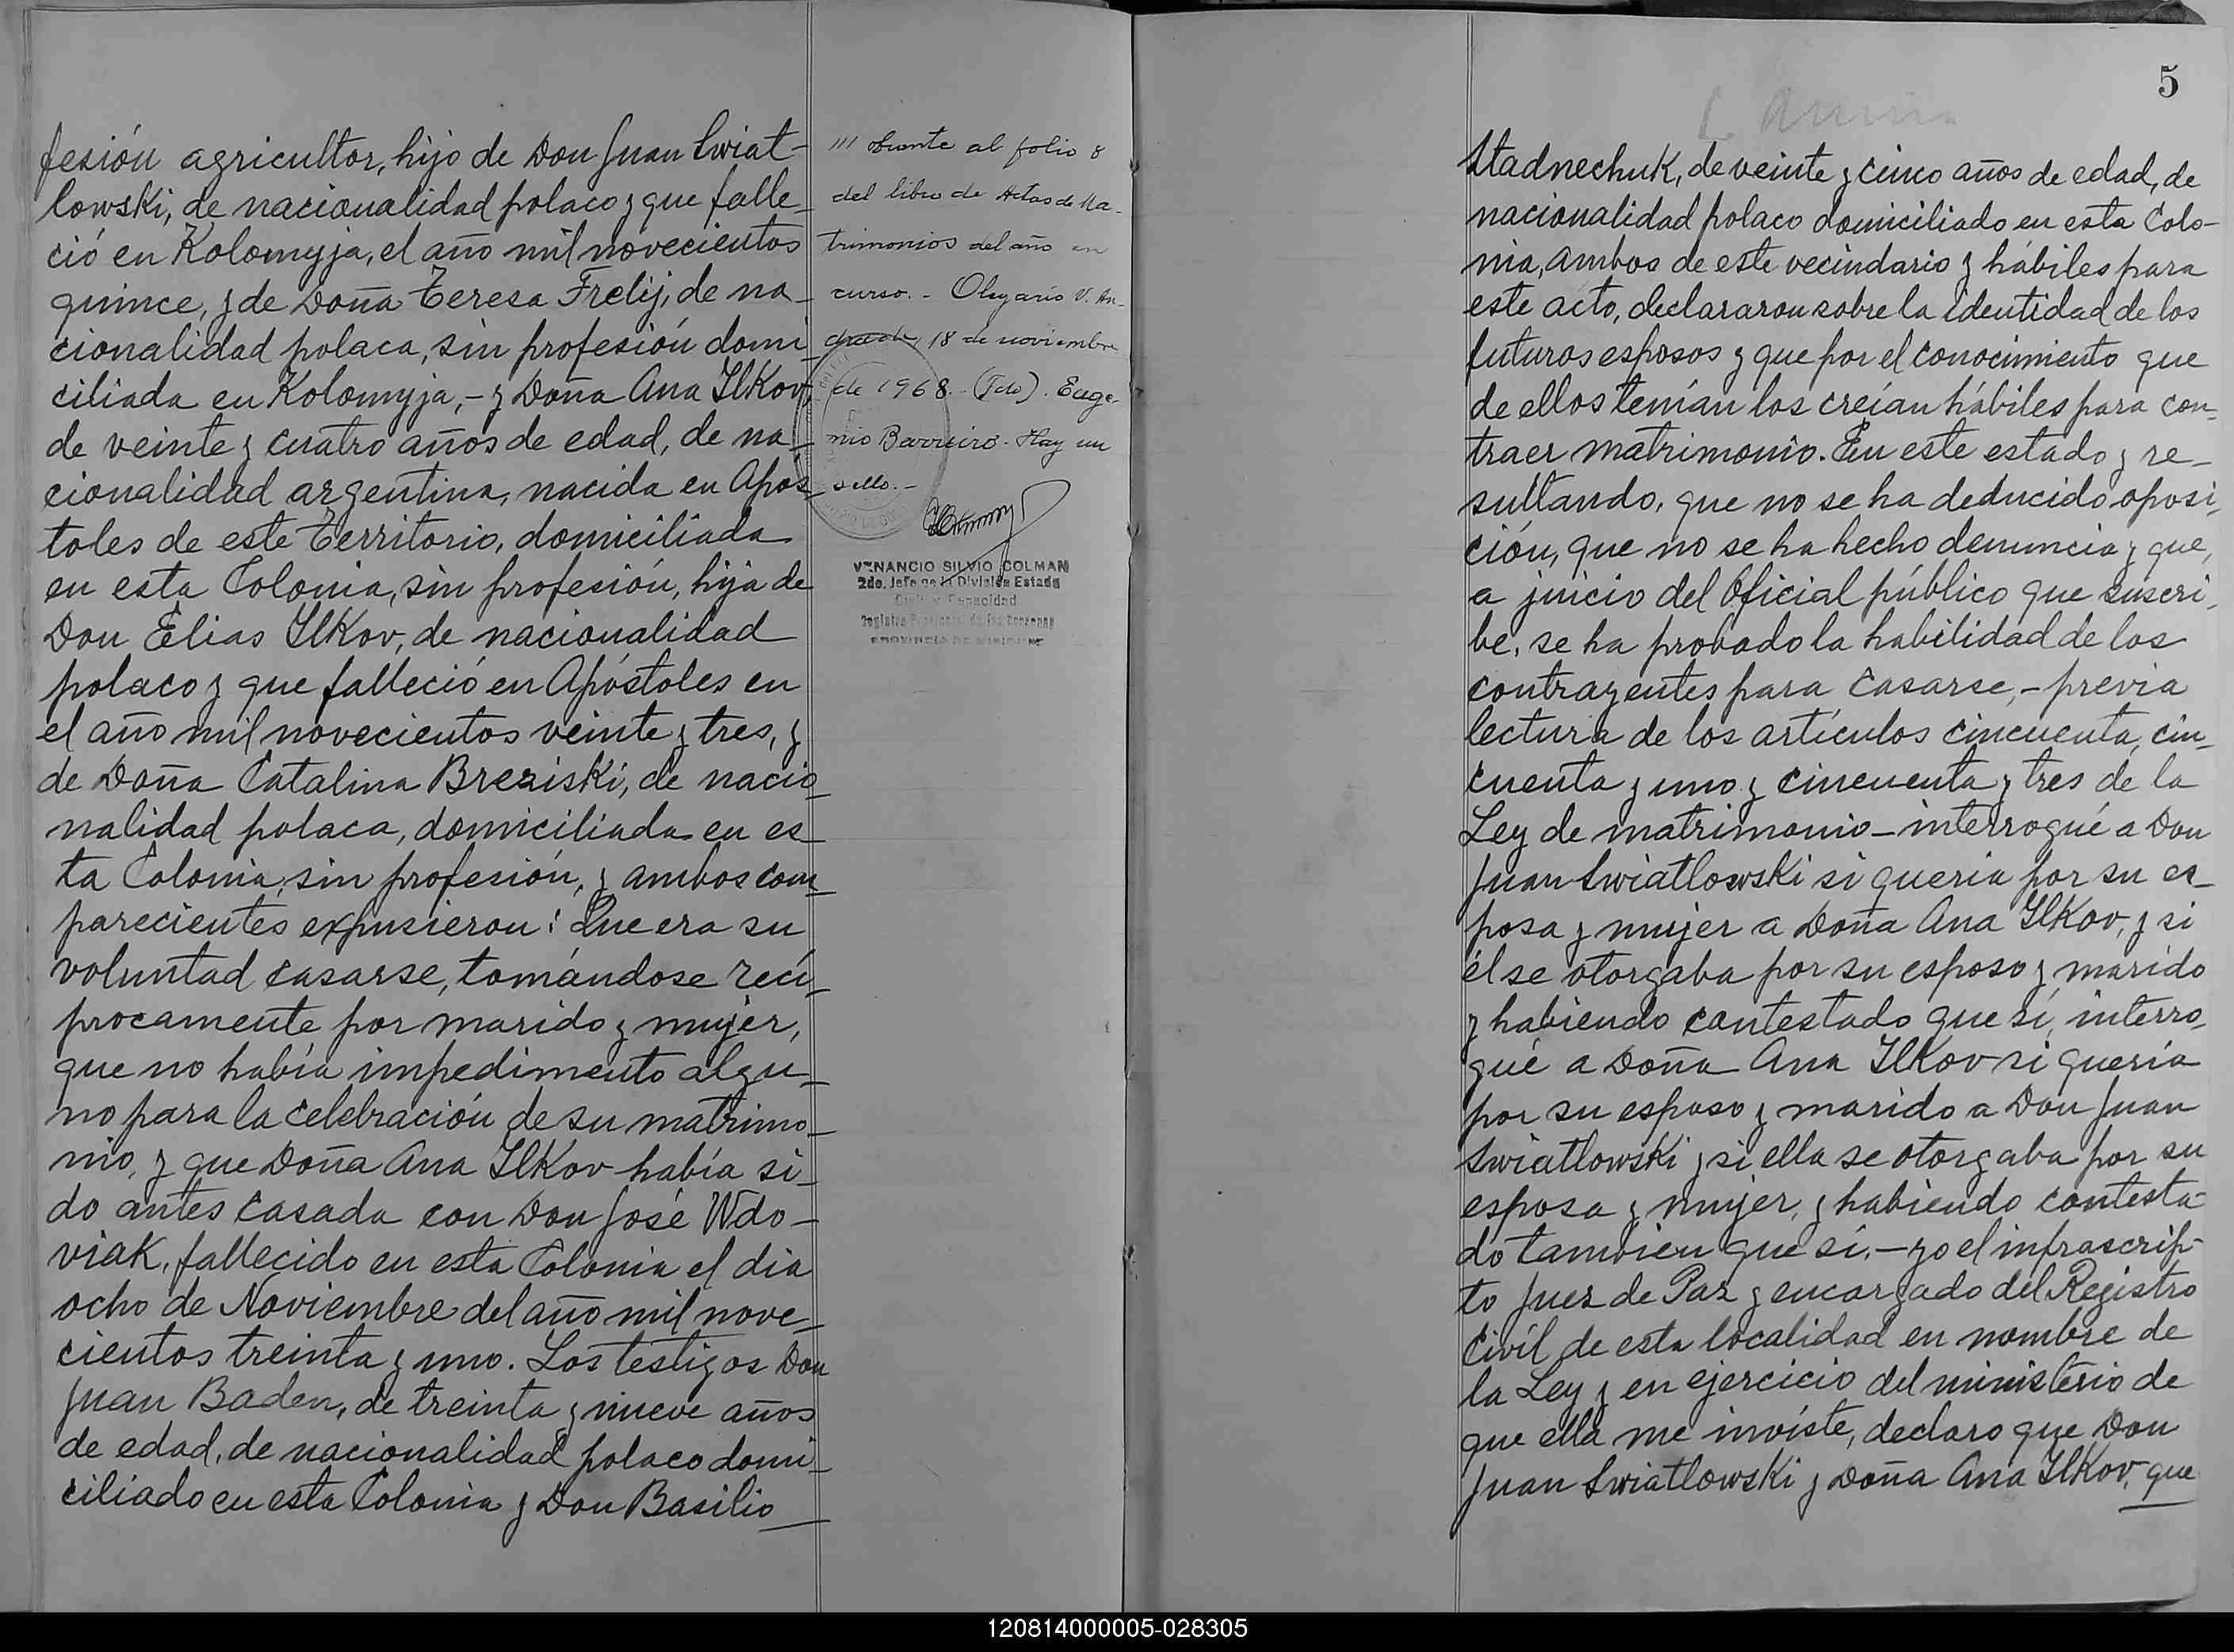 fesión agricultor, hijo de Don Juan Swiat-
lowski, de nacionalidad polaco y que falle-
ció en Kolomyja, el año mil novecientos
quince, y de Doña Teresa Frelij, de na-
cionalidad polaca, sin profesión domi-
ciliada en Kolomyja,- y Doña Ana Ilkov,
de veinte y cuatro años de edad, de na-
cionalidad argentina, nacida en Após-
toles de este Territorio, domiciliada
en esta Colonia, sin profesión, hija de
Don Elias Ilkov, de nacionalidad
polaco y que falleció en Apóstoles en
el año mil novecientos veinte y tres, y
de Doña Catalina Bresiski, de nacio-
nalidad polaca, domiciliada en es-
ta Colonia, sin profesión, y ambos com-
parecientes expusieron: Que era su
voluntad casarse, tomándose recí-
procamente por marido y mujer,
que no había impedimento algu-
no para la celebración de su matrimo-
nio, y que Doña Ana Ilkov había si-
do antes casada con Don José Wdo-
viak, fallecido en esta Colonia el dia
ocho de Noviembre del año mil nove-
cientos treinta y uno. Los testigos Don
Juan Baden, de treinta y nueve años
de edad, de nacionalidad polaco domi-
ciliado en esta Colonia y Don Basilio
/// obrante al folio 8
del libro de Actas de Ma-
trimonios del año en
curso. - Olegario V. An-
drade, 18 de noviembre
de 1968.- (Fdo). Euge-
nio Barreiro - Hay un
sello.-
VENANCIO SILVIO COLMAN
2do. Jefe de la División Estado
Civil y Capacidad
Registro Provincial de las Personas
PROVINCIA DE MISIONES
5
Stadnechuk, de veinte y cinco años de edad, de
nacionalidad polaco domiciliado en esta Colo-
nia, ambos de este vecindario y hábiles para
este acto, declararon sobre la identidad de los
futuros esposos y que por el conocimiento que
de ellos tenían los creían hábiles para con-
traer matrimonio. En este estado y re-
sultando, que no se ha deducido oposi-
ción, que no se ha hecho denuncia y que,
a juicio del Oficial público que suscri-
be, se ha probado la habilidad de los
contrayentes para casarse,- previa
lectura de los artículos cincuenta, cin-
cuenta y uno y cincuenta y tres de la
Ley de matrimonio - interrogué a Don
Juan Swiatlowski si queria por su es-
posa y mujer a Doña Ana Ilkov, y si
él se otorgaba por su esposo y marido
y habiendo contestado que sí, interro-
gué a Doña Ana Ilkov si quería
por su esposo y marido a Don Juan
Swiatlowski y si ella se otorgaba por su
esposa y mujer, y habiendo contesta-
do tambien que sí.- yo el infrascrip-
to Juez de Paz y encargado del Registro
Civíl de esta localidad en nombre de
la Ley y en ejercicio del ministerio de
que ella me inviste, declaro que Don
Juan Swiatlowski y Doña Ana Ilkov, que
120814000005-028305